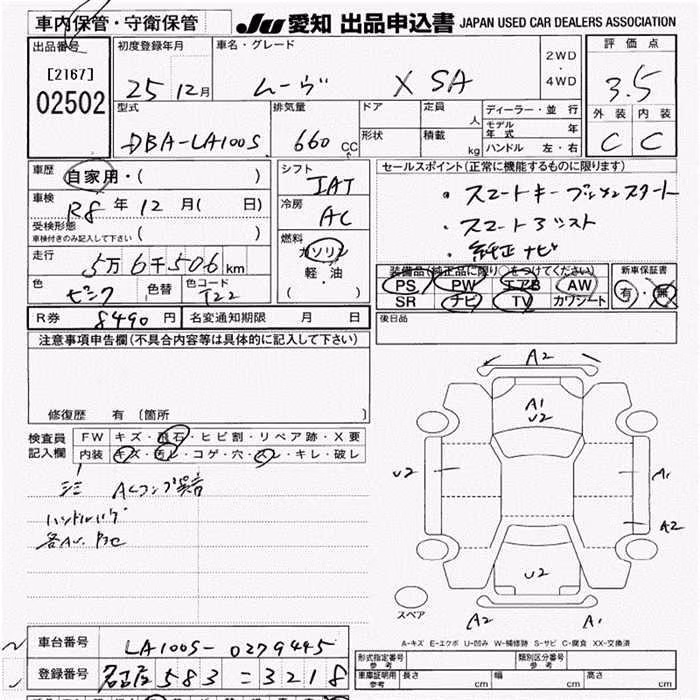 車内保管・守衛保管
JU 愛知 出品申込書 JAPAN USED CAR DEALERS ASSOCIATION
出品番号
[2167]
02502
初度登録年月
25 12月
車名・グレード
ムーヴ X SA
2WD
4WD
評価点
3.5
外装 内装
C C
型式
DBA-LA100S
排気量
660 CC
ドア
形状
定員
人
積載
kg
ディーラー・並行
モデル年式 年
ハンドル 左・右
車歴
自家用・( )
車検
R8年12月( 日)
受検形態
車検付きのみ記入して下さい ( )
走行
5万6千506km
色
ピンク
色替
色コード
T22
シフト
IAT
冷房
AC
燃料
ガソリン
軽・油
( )
セールスポイント(正常に機能するものに限ります)
・スマートキー プッシュスタート
・スマートアシスト
・純正ナビ
装備品(純正品に限り○をつけてください)
PS PW エアB AW
SR ナビ TV カワシート
新車保証書
有・無
R券 8490円
名変通知期限 月 日
後日品
注意事項申告欄(不具合内容等は具体的に記入して下さい)
修復歴 有 (箇所 )
検査員
記入欄
FW キズ・飛石・ヒビ割・リペア跡・X要
内装 キズ・汚レ・コゲ・穴・スレ・キレ・破レ
ACコンプ異音
各AU.
A2
A1
U2
U2
A1
A2
U2
A2
A1
スペア
A-キズ E-エクボ U-凹み W-補修跡 S-サビ C-腐食 XX-交換済
車台番号
LA100S-0279445
登録番号
名古屋 583 ニ 3218
形式指定番号
参考
類別区分番号
参考
車庫証明用
参考
長さ cm
幅 cm
高さ cm